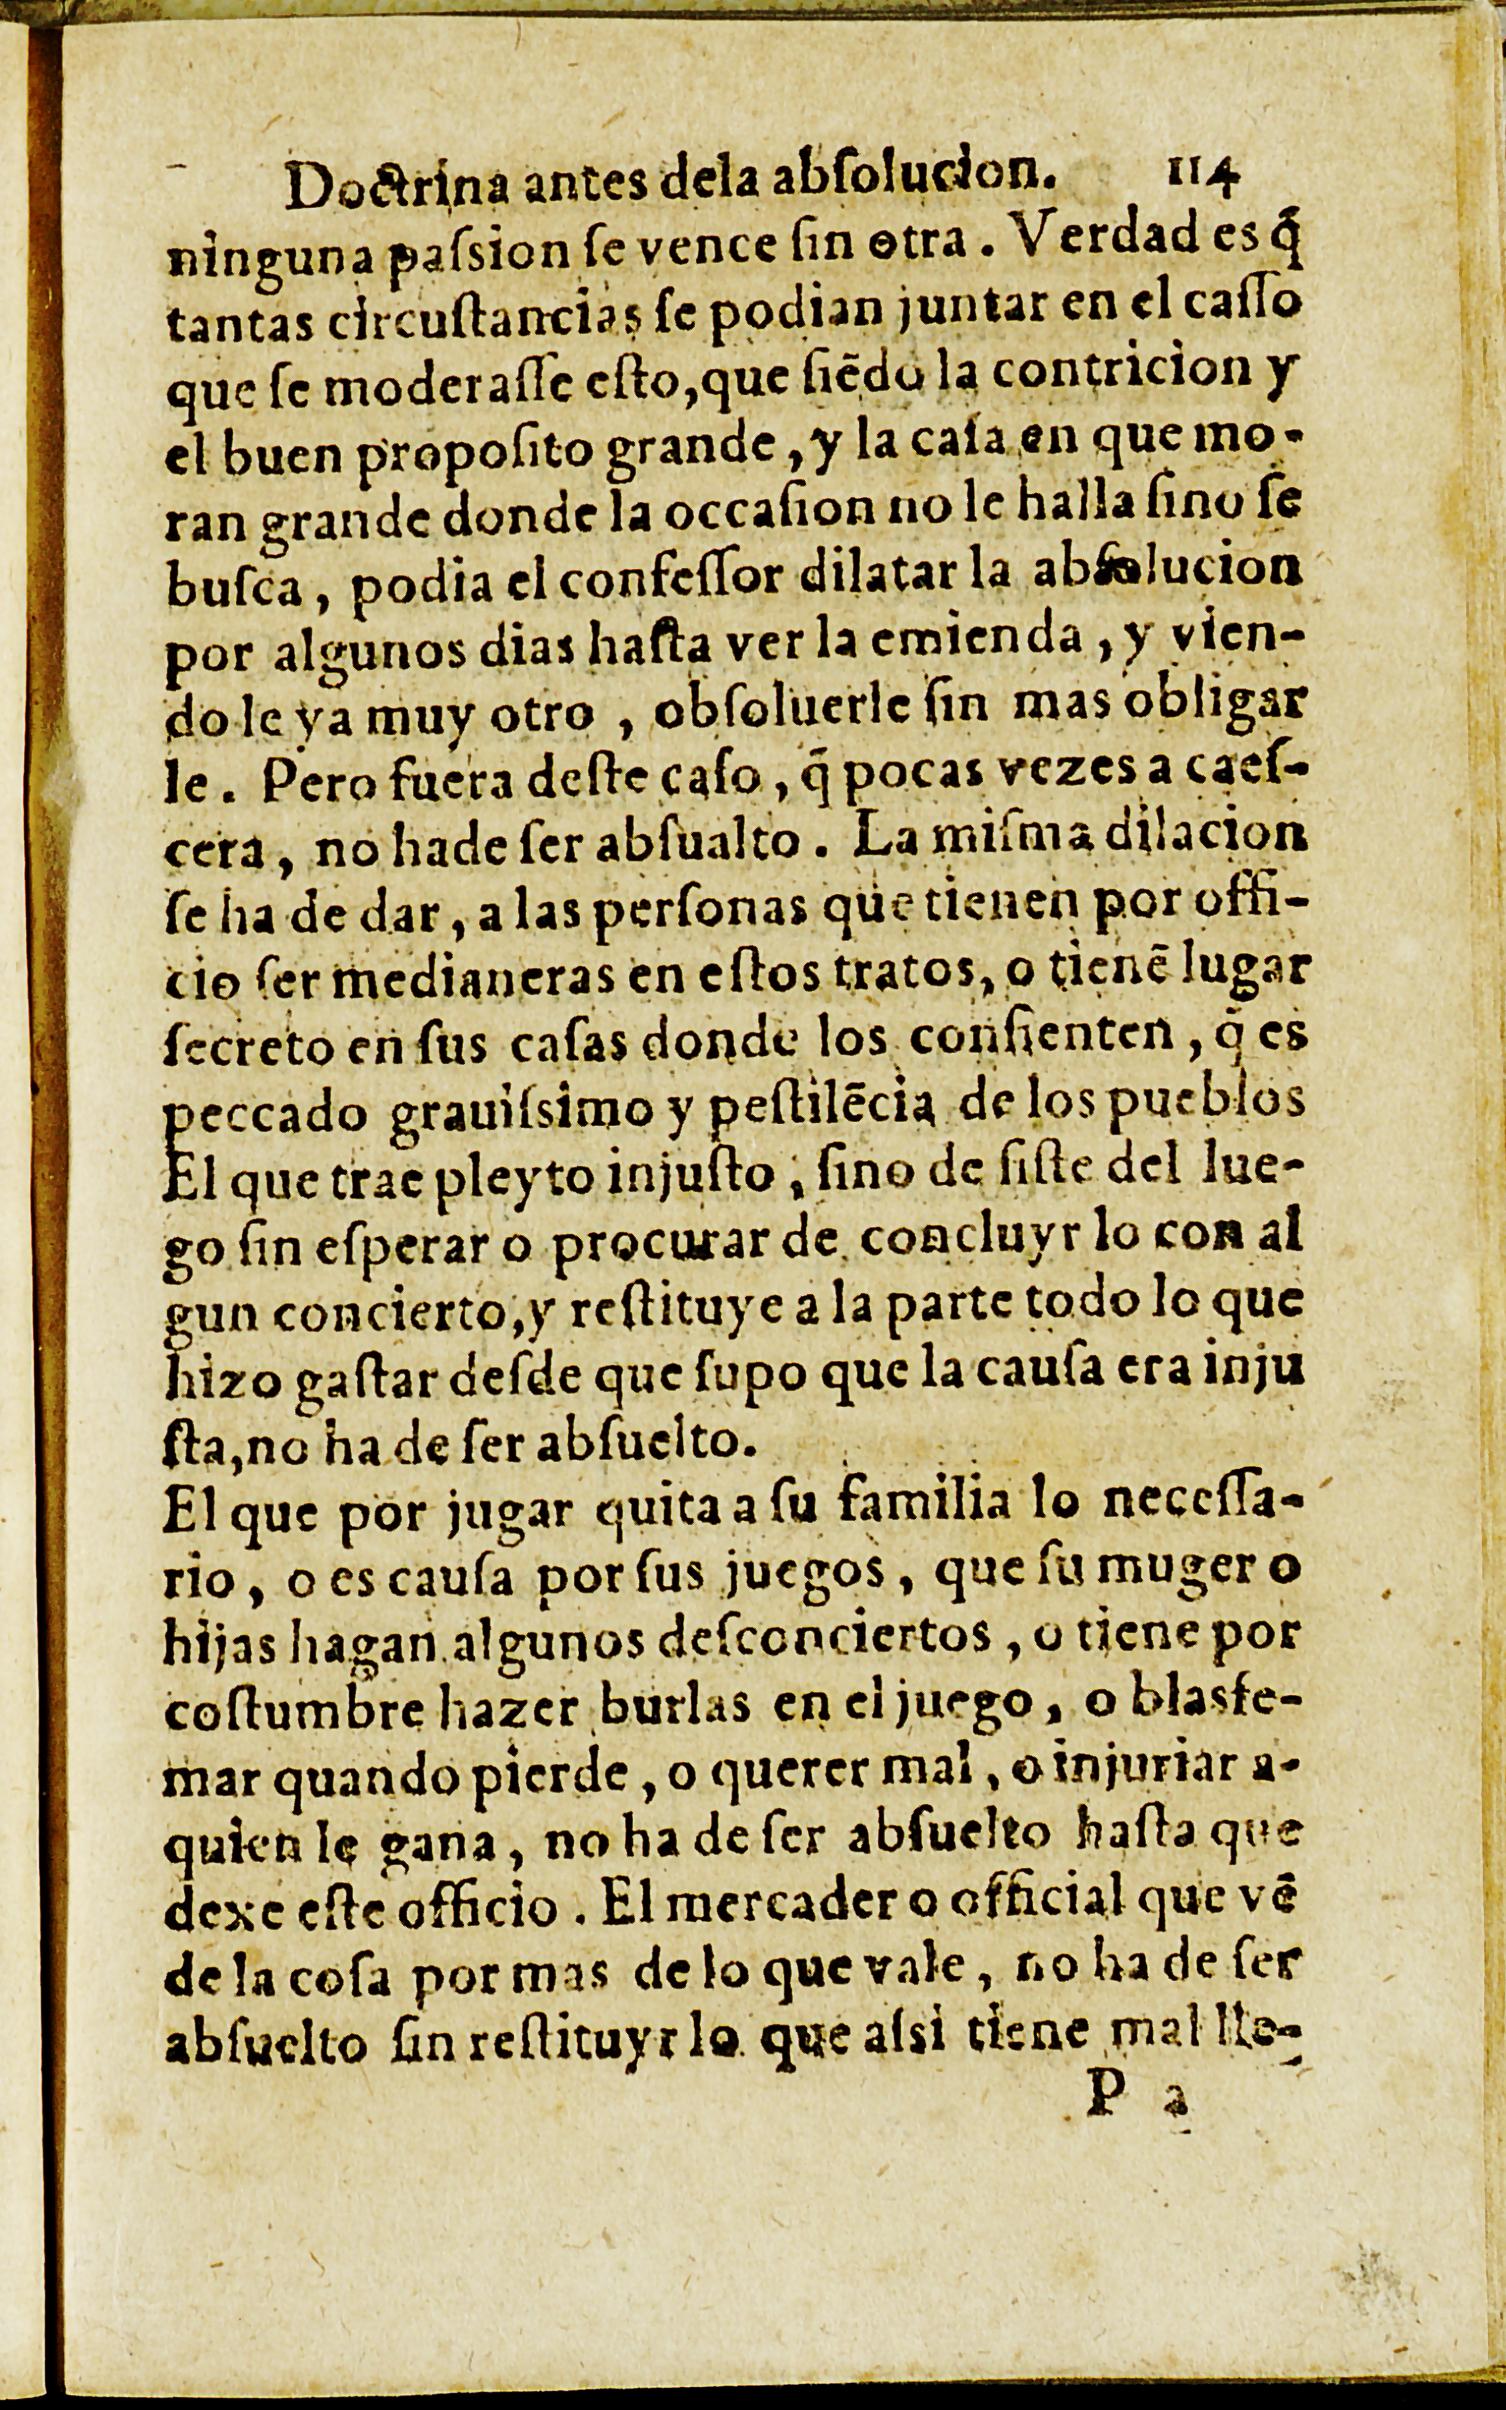 Doctrina antes dela abſolucion. 114
ninguna paſsion ſe vence ſin otra. Verdad es q̃
tantas circuſtancias ſe podian juntar en el caſſo
que ſe moderaſſe eſto, que ſiẽdo la contricion y
el buen propoſito grande, y la caſa en que mo-
ran grande donde la occaſion no le halla ſino ſe
buſca, podia el confeſſor dilatar la abſolucion
por algunos dias haſta ver la emienda, y vien-
do le ya muy otro, obſoluerle ſin mas obligar
le. Pero fuera deſte caſo, q̃ pocas vezes a caeſ-
cera, no hade ſer abſualto. La miſma dilacion
ſe ha de dar, a las perſonas que tienen por offi-
cio ſer medianeras en eſtos tratos, o tienẽ lugar
ſecreto en ſus caſas donde los conſienten, q̃ es
peccado grauiſsimo y peſtilẽcia de los pueblos
El que trae pleyto injuſto, ſino de ſiſte del lue-
go ſin eſperar o procurar de concluyr lo con al
gun concierto, y reſtituye a la parte todo lo que
hizo gaſtar deſde que ſupo que la cauſa era inju
ſta, no ha de ſer abſuelto.
El que por jugar quita a ſu familia lo neceſſa-
rio, o es cauſa por ſus juegos, que ſu muger o
hijas hagan algunos deſconciertos, o tiene por
coſtumbre hazer burlas en el juego, o blasfe-
mar quando pierde, o querer mal, o injuriar a-
quien le gana, no ha de ſer abſuelto haſta que
dexe eſte officio. El mercader o official que vẽ
de la coſa por mas de lo que vale, no ha de ſer
abſuelto ſin reſtituyr lo que aſsi tiene mal lle-
P 2